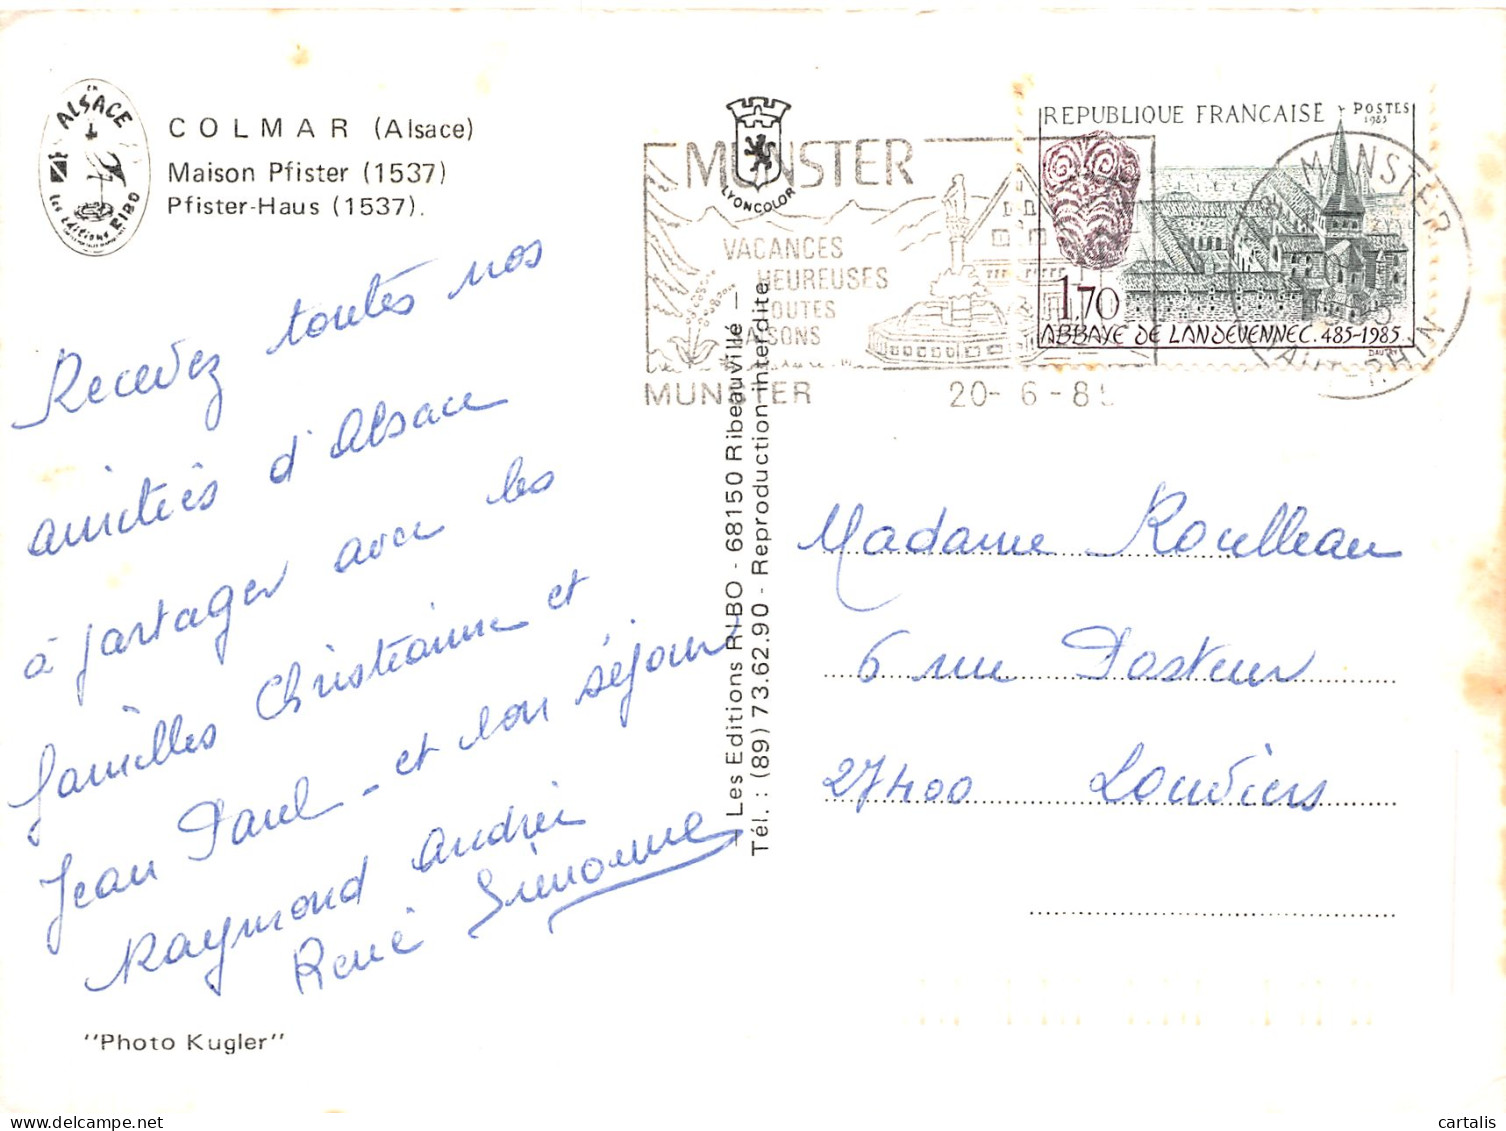 EN
ALSACE
Les Editions RIBO
COLMAR (Alsace)
Maison Pfister (1537)
Pfister-Haus (1537).
Recevez toutes nos
amitiés d'Alsace
à partager avec les
familles Christianne et
Jean Paul - et bon séjour
Raymond Andrée
René Simonne
"Photo Kugler"
LYONCOLOR
Les Editions RIBO - 68150 Ribeauvillé —
Tél. : (89) 73.62.90 - Reproduction interdite
MUNSTER
VACANCES
HEUREUSES
TOUTES
SAISONS
MUNSTER
20-6-85
REPUBLIQUE FRANCAISE
POSTES
1985
1,70
ABBAYE DE LANDEVENNEC. 485-1985
MUNSTER
HAUT-RHIN
Madame Roulleau
6 rue Pasteur
27400 Louviers
cartalis